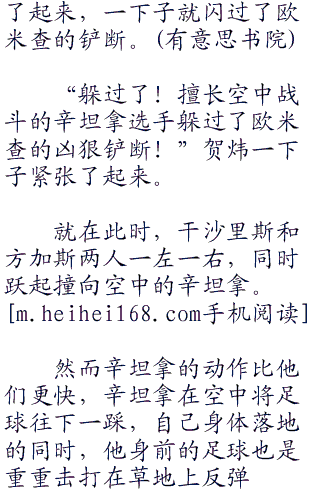 了起来，一下子就闪过了欧
米查的铲断。(有意思书院)
“躲过了！擅长空中战
斗的辛坦拿选手躲过了欧米
查的凶狠铲断！”贺炜一下
子紧张了起来。
就在此时，干沙里斯和
方加斯两人一左一右，同时
跃起撞向空中的辛坦拿。
[m.heihei168.com手机阅读]
然而辛坦拿的动作比他
们更快，辛坦拿在空中将足
球往下一踩，自己身体落地
的同时，他身前的足球也是
重重击打在草地上反弹